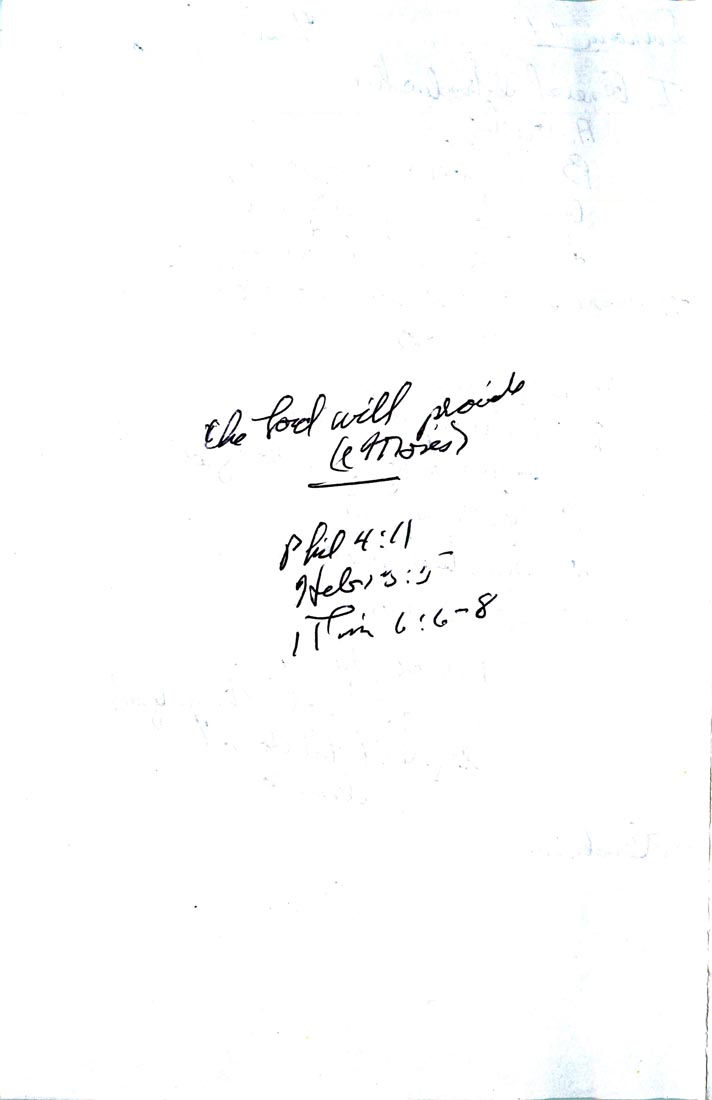 the Lord will provide
(e Moses)
Phil 4:11
Heb 13:5
1 Tim 6:6-8